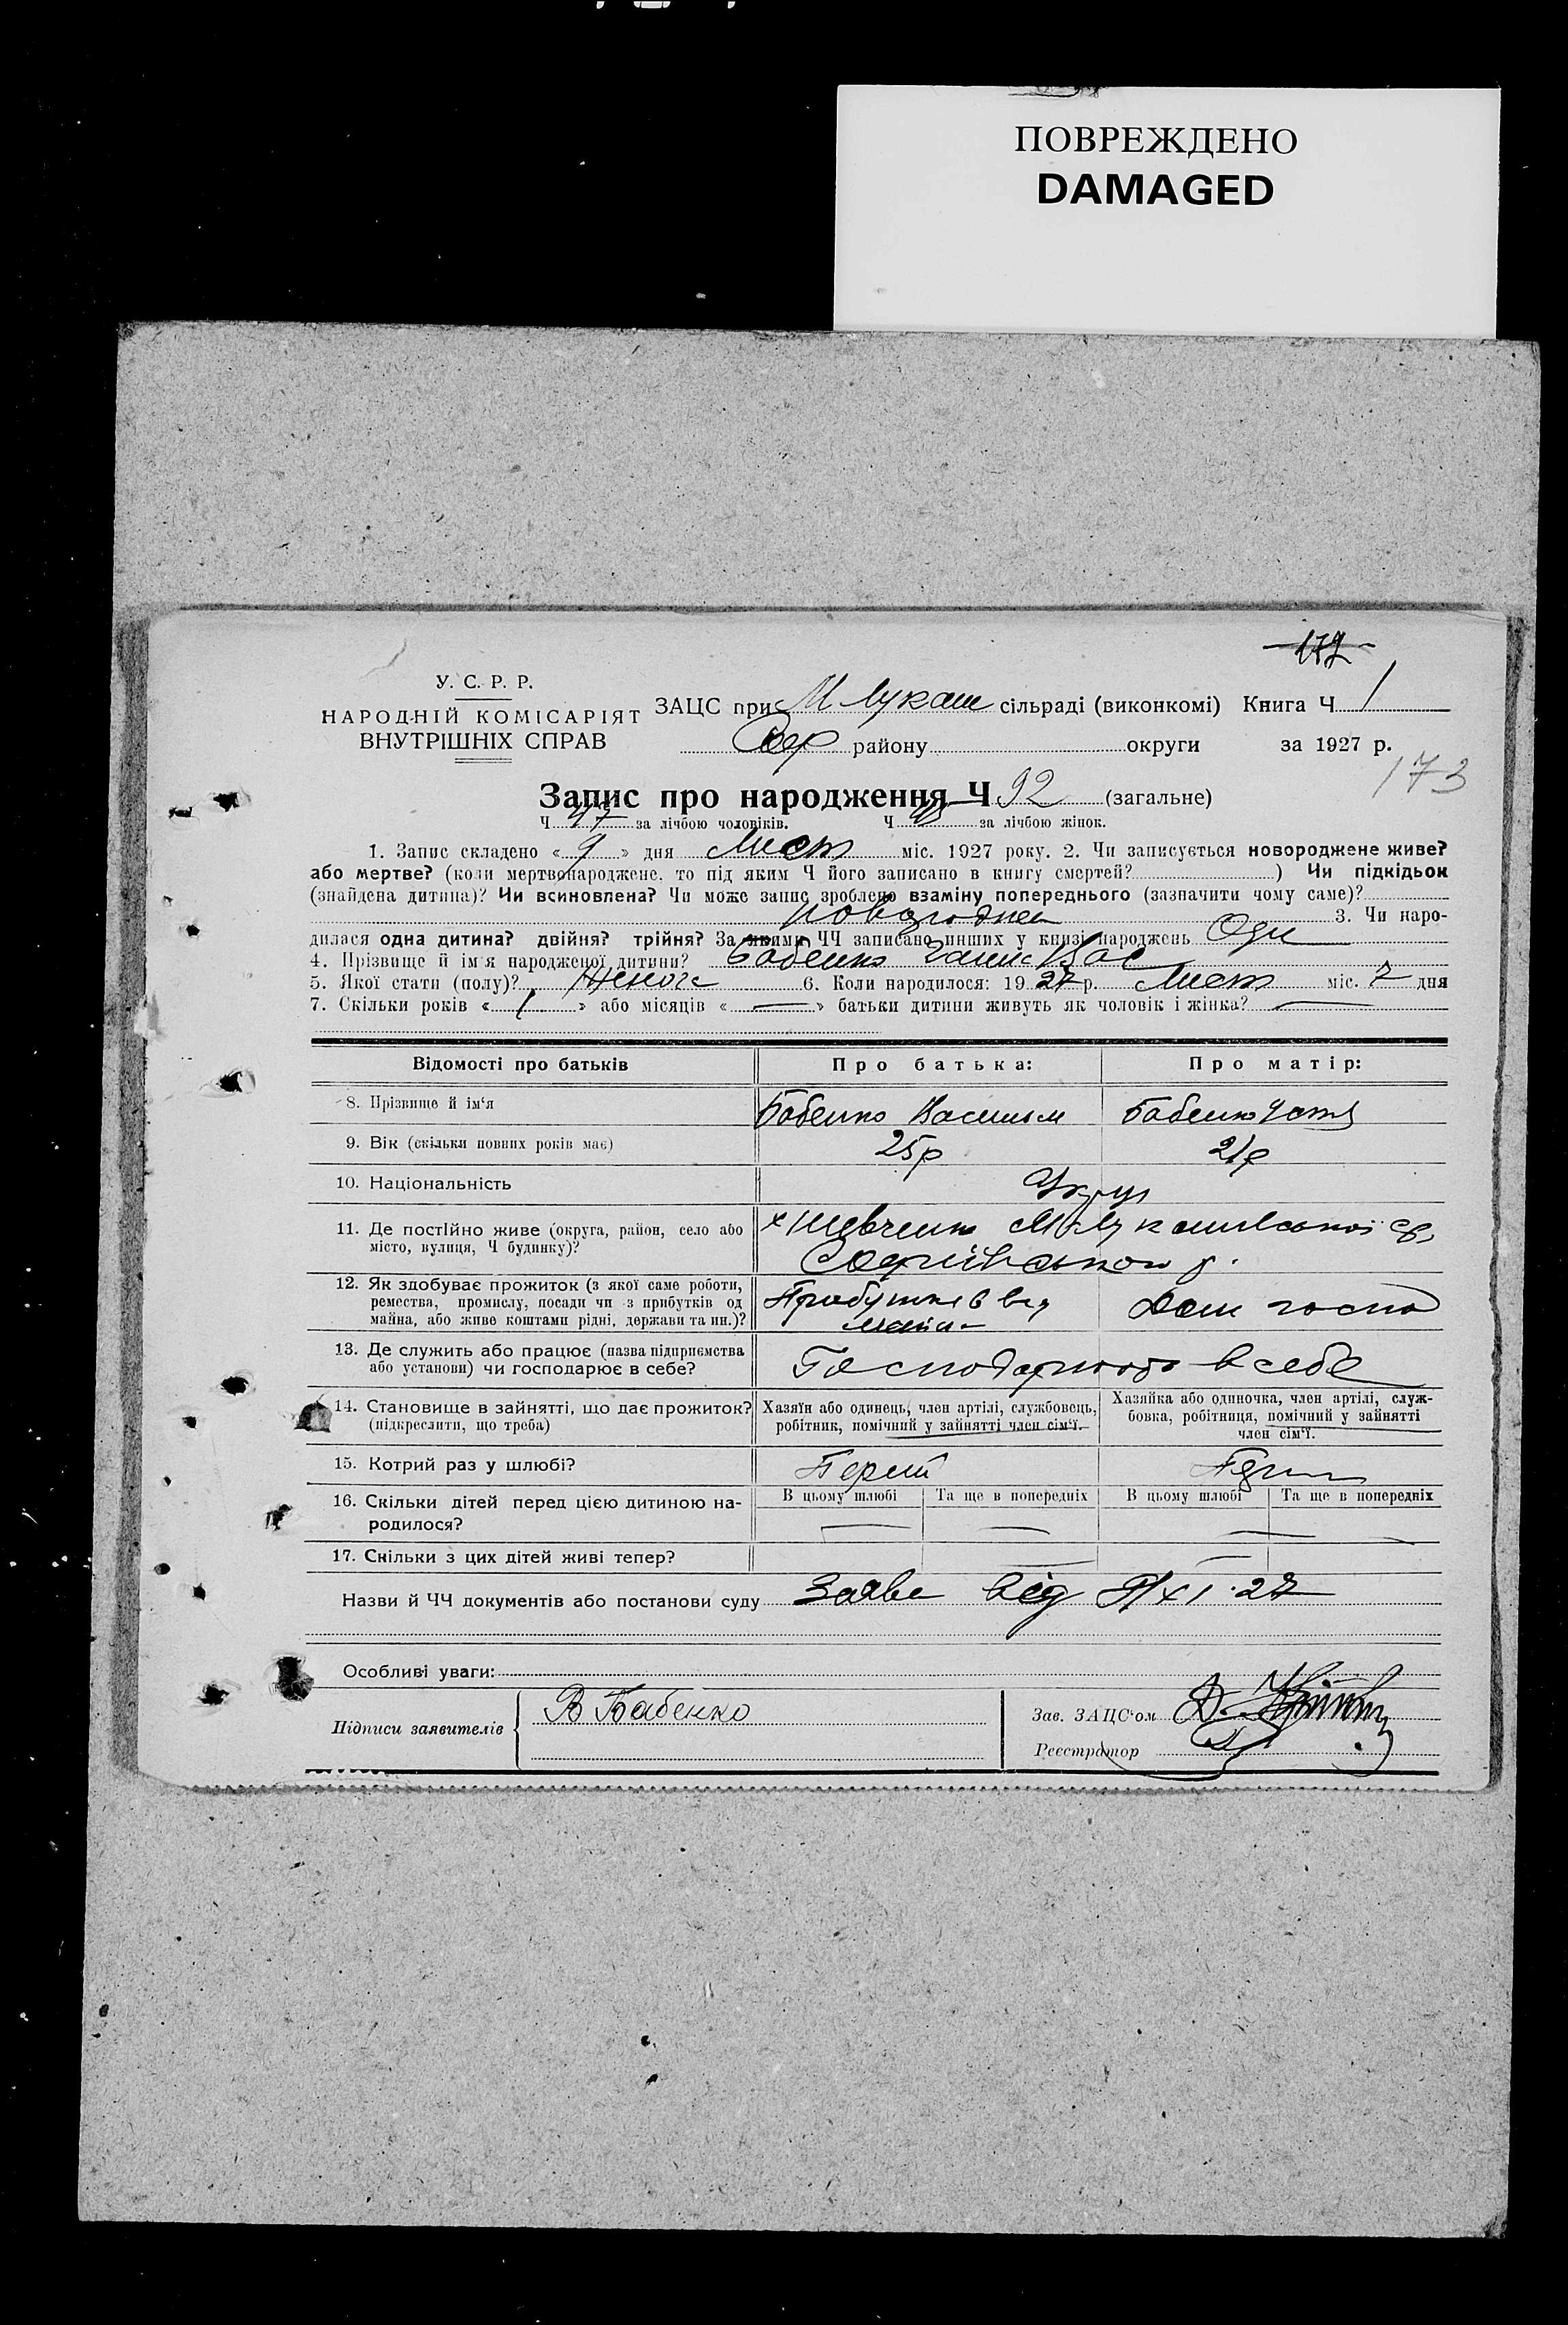 ПОВРЕЖДЕНО
DAMAGED
172
У. С. Р. Р.
НАРОДНІЙ КОМІСАРІЯТ
ВНУТРІШНІХ СПРАВ
ЗАЦС при М Лукаш сільраді (виконкомі) Книга Ч 1
Соф району округи за 1927 р.
173
Запис про народження Ч 92 (загальне)
Ч 47 за лічбою чоловіків. Ч 45 за лічбою жінок.
1. Запис складено «9» дня Лист міс. 1927 року. 2. Чи записується новороджене живе?
або мертве? (коли мертвонароджене, то під яким Ч його записано в книгу смертей? ) Чи підкідьок
(знайдена дитина)? Чи всиновлена? Чи може запис зроблено взаміну попереднього (зазначити чому саме)?
3. Чи наро-
дилася одна дитина? двійня? трійня? За якими ЧЧ записано инших у книзі народжень Одн
4. Прізвище й ім'я народженої дитини? Бабенко Ганна Вас
5. Якої стати (полу)? Жіноча 6. Коли народилося: 1927 р. Лист міс. 7 дня
7. Скільки років «1» або місяців «—» батьки дитини живуть як чоловік і жінка? —
Відомості про батьків Про батька: Про матір:
8. Прізвище й ім'я Бабенко Василь Бабенко
9. Вік (скільки повних років має) 25 р 21 р
10. Національність Укр
11. Де постійно живе (округа, район, село або
місто, вулиця, Ч будинку)? х Шевченко М-Лукашівської с/р,
Софіївського р.
12. Як здобуває прожиток (з якої саме роботи,
ремества, промислу, посади чи з прибутків од
майна, або живе коштами рідні, держави та ин.)? Прибутків від Дом госпо
майна
13. Де служить або працює (назва підприємства
або установи) чи господарює в себе? Господарюють в себе
14. Становище в зайнятті, що дає прожиток?
(підкреслити, що треба)
Хазяїн або одинець, член артілі, службовець,
робітник, помічний у зайнятті член сім'ї.
Хазяйка або одиночка, член артілі, служ-
бовка, робітниця, помічний у зайнятті
член сім'ї.
15. Котрий раз у шлюбі? Перший Перш
16. Скільки дітей перед цією дитиною на-
родилося?
В цьому шлюбі Та ще в попередніх В цьому шлюбі Та ще в попередніх
17. Скільки з цих дітей живі тепер?
Назви й ЧЧ документів або постанови суду Заява від 9/XI 27
Особливі уваги:
Підписи заявителів В Бабенко
Зав. ЗАЦС'ом
Реєстратор